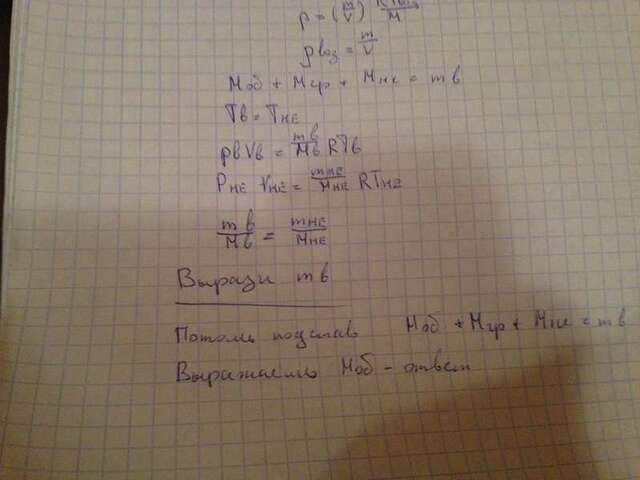 p = (m/V) RTвоз/M
ρвоз = m/V
Mоб + Mгр + Mне = mв
Tв = Tне
pвVв = mв/Mв RTв
Pне Vне = mне/Mне RTне
mв/Mв = mне/Mне
Вырази mв
Потомь подставь Mоб + Mгр + Mне = mв
Выражаемь Mоб - ответ